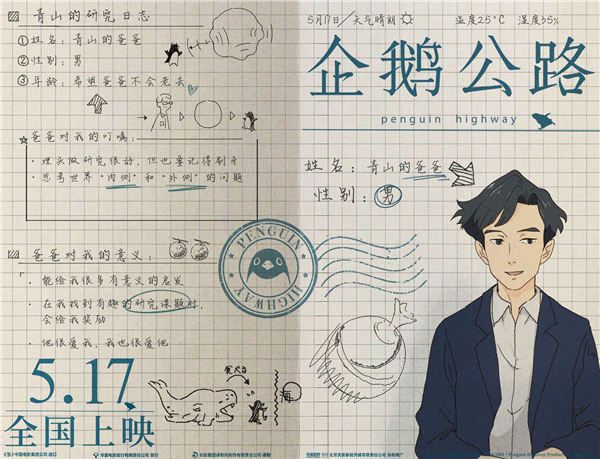 青山的研究日志
①姓名：青山的爸爸
②性别：男
③年龄：希望爸爸不会老去
爸爸对我的叮嘱：
·埋头做研究很好，但也要记得刷牙
·思考世界“内侧”和“外侧”的问题
爸爸对我的意义：
·能给我很多有意义的启发
·在我找到有趣的研究课题时，
会给我奖励
·他很爱我，我也很爱他
5.17
全国上映
海
PENGUIN
HIGHWAY
5月17日/天气晴朗
温度25°C 湿度35%
企鹅公路
penguin highway
姓名：青山的爸爸
性别：男
中国电影集团公司 进口